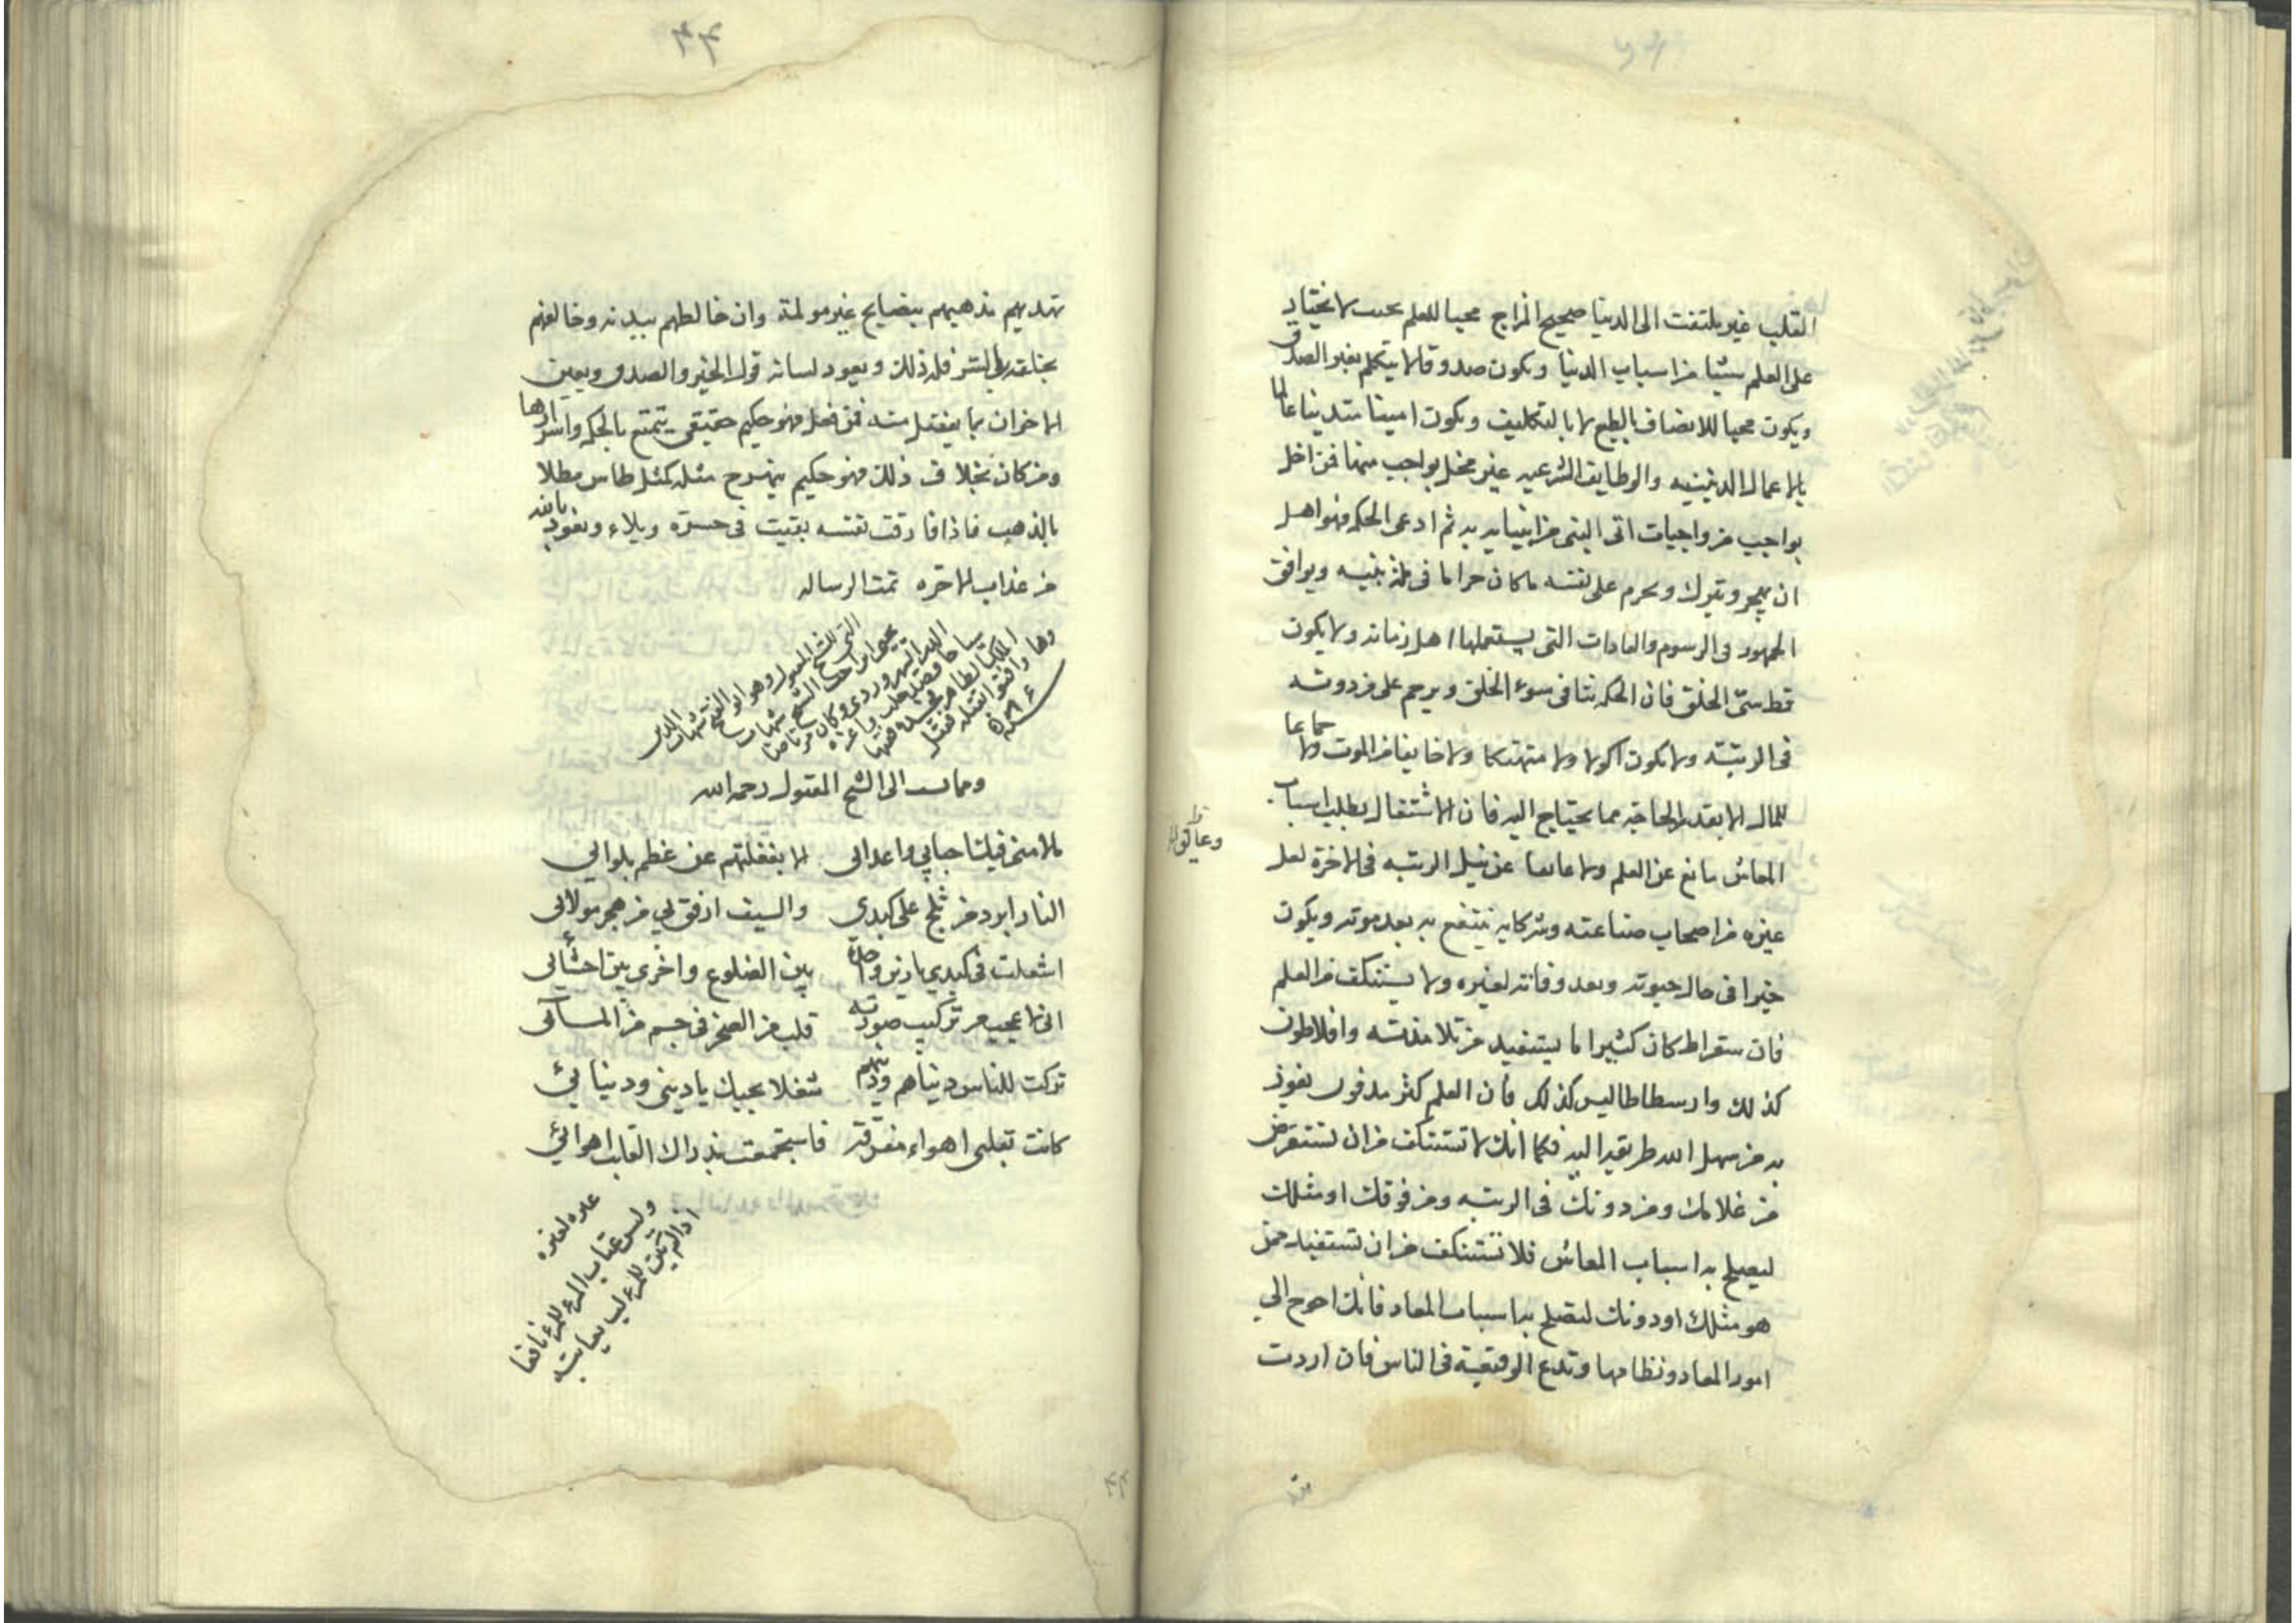 القلب غير ملتفت الى الدنيا صحيح المزاج محبا للعلم بحيث لا يختار
على العلم شيئا من اسباب الدنيا ويكون صدوقا لا يتكلم بغير الصدق
ويكون محبا للانصاف بالطبع لا بالتكليف ويكون امينا متدينا عالما
بالاعمال الدينيه والوظايف الشرعيه غير مخل بواجب منها فمن اخل
بواجب من واجبات اتى النبي من انبيايه به ثم ادعى الحكمه فهو اهل
ان يهجر ويترك ويحرم على نفسه ما كان حراما في ملة نبيه ويوافق
الجمهور في الرسوم والعادات التي يستعملها اهل زمانه ولا يكون
فظ سئ الخلق فان الحكمه تنافي سوء الخلق ويرحم على من دونه
في الرتبة ولا يكون اكولا ولا متهتكا ولا خايفا من الموت ولا جماعا
للمال الا بقدر الحاجة مما يحتاج اليه فان الاشتغال بطلب اسباب
المعاش مانع عن العلم ولا عايقا عن نيل الرتبه في الاخرة لعل
غيره من اصحاب صناعته وشركايه ينتفع به بعد موته ويكون
خيرا في حال حيوته وبعد وفاته لغيره ولا يستنكف من العلم
فان سقراط كان كثيرا ما يستفيد من تلامذته وافلاطون
كذلك وارسطاطاليس كذلك فان العلم كنز مدفون يفوز
به من سهل الله طريقه اليه فكما انك لا تستنكف من ان تستقرض
من غلامك ومن دونك في الرتبه ومن فوقك او مثلك
ليصلح به اسباب المعاش فلا تستنكف من ان تستفيد ممن
هو مثلك او دونك لتصلح به اسباب المعاد فانك احوج الى
امور المعاد ونظامها وتدع الوقيعة في الناس فان اردت
تهديهم فذهبهم بنصايح غير مولمة وان خالطهم ببدنه وخالفهم
بخلقه فله ذلك ويعود لسانه قول الخير والصدق ويعين
الاخوان بما يفضل منه فمن فعل فهو حكيم حقيقي يتمتع بالحكمه واسرارها
ومن كان بخلاف ذلك فهو حكيم بهرج مثله كمثل طاس مطلا
بالذهب فاذا فارقت نفسه بقيت في حسرة وبلاء ونعوذ بالله
من عذاب الاخره تمت الرساله
التي للشيخ المقتول وهو ابو الفتح شهاب الدين
يحيى
السهروردي وكان مرتاضا
٥٨٦
ومما نسب الى الشيخ المقتول رحمه الله
ما لامني فيك احبابي واعدائي الا بغفلتهم عن عظم بلوائي
النار ابرد من ثلج على كبدي والسيف ارفق بي من هجر مولائي
اشعلت في كبدي نارين واحدة بين الضلوع واخرى بين احشائي
اني لاعجب من تركيب صورته قلب من الصخر في جسم من الماء
تركت للناس دنياهم ودينهم شغلا بحبك يا ديني ودنيائي
كانت بقلبي اهواء مفرقة فاستجمعت مذ راك القلب اهوائي
غيره لغيره
وليس عتاب المرء للمرء نافعا
اذا لم يكن للمرء لب يعاتبه